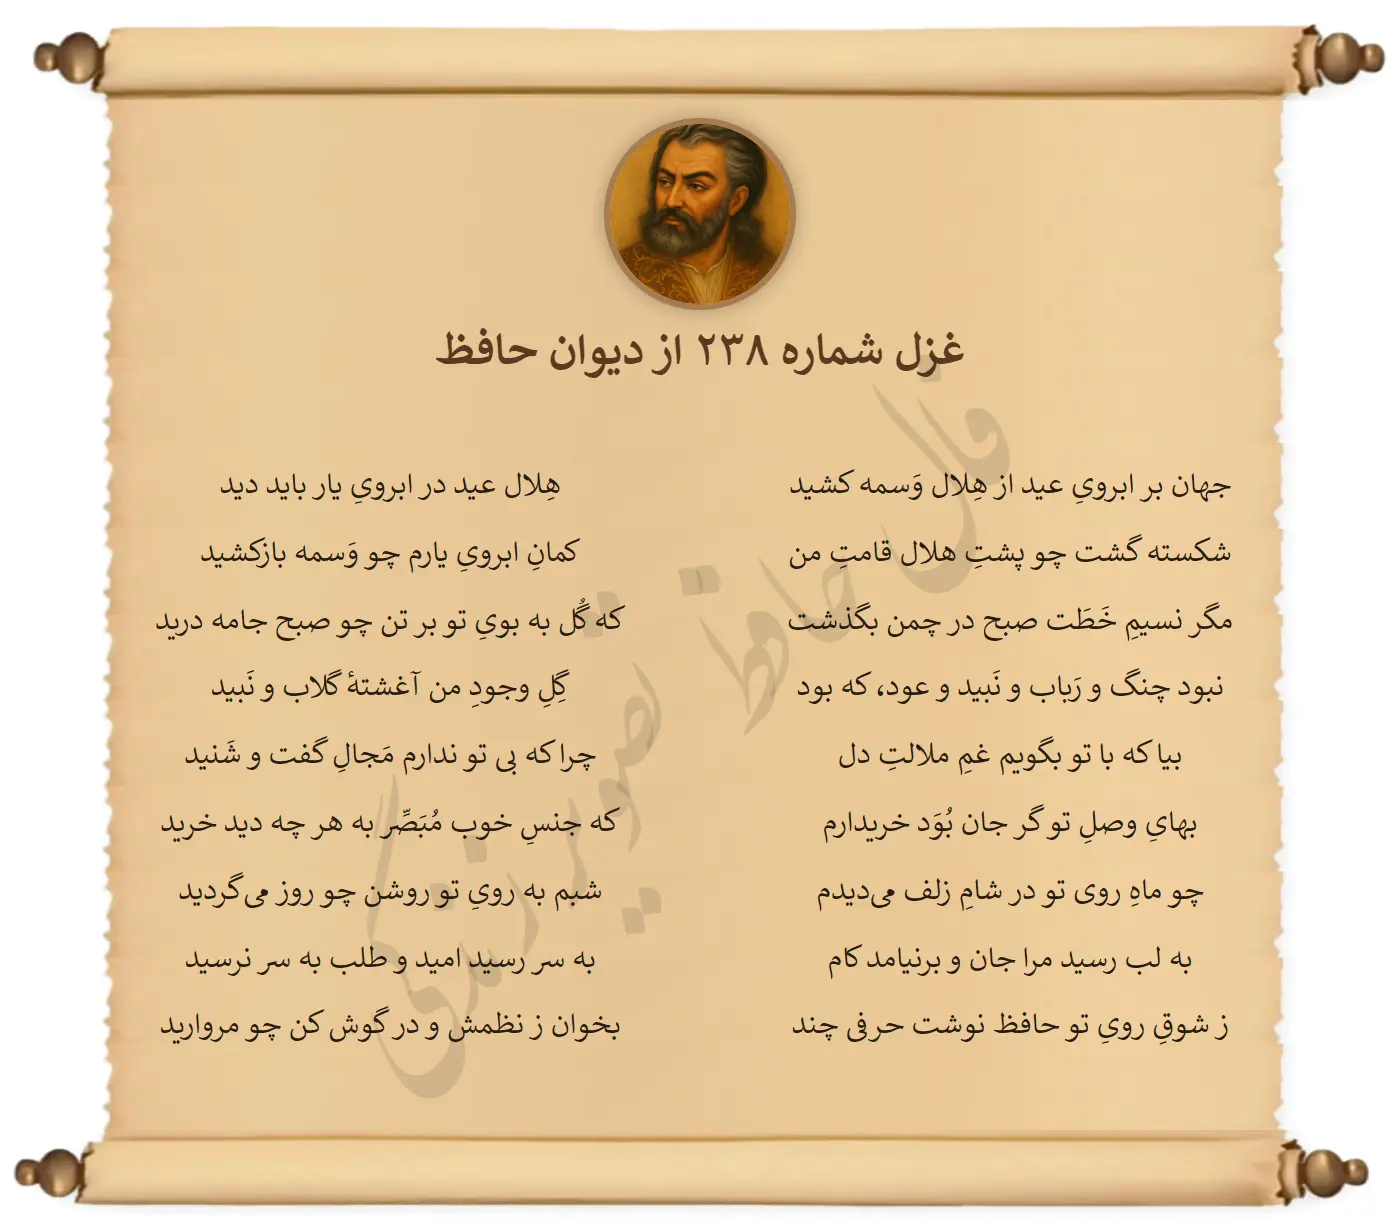 غزل شماره ۲۳۸ از دیوان حافظ
جهان بر ابرویِ عید از هِلال وَسمه کشید
هِلال عید در ابرویِ یار باید دید
شکسته گشت چو پشتِ هلال قامتِ من
کمانِ ابرویِ یارم چو وَسمه بازکشید
مگر نسیمِ خَطَت صبح در چمن بگذشت
که گُل به بویِ تو بر تن چو صبح جامه درید
نبود چنگ و رَباب و نَبید و عود، که بود
گِلِ وجودِ من آغشتهٔ گلاب و نَبید
بیا که با تو بگویم غمِ ملالتِ دل
چرا که بی تو ندارم مَجالِ گفت و شَنید
بهایِ وصلِ تو گر جان بُوَد خریدارم
که جنسِ خوب مُبَصِّر به هر چه دید خرید
چو ماهِ روی تو در شامِ زلف می‌دیدم
شبم به رویِ تو روشن چو روز می‌گردید
به لب رسید مرا جان و برنیامد کام
به سر رسید امید و طلب به سر نرسید
ز شوقِ رویِ تو حافظ نوشت حرفی چند
بخوان ز نظمش و در گوش کن چو مروارید
فال حافظ تصویر زندگی